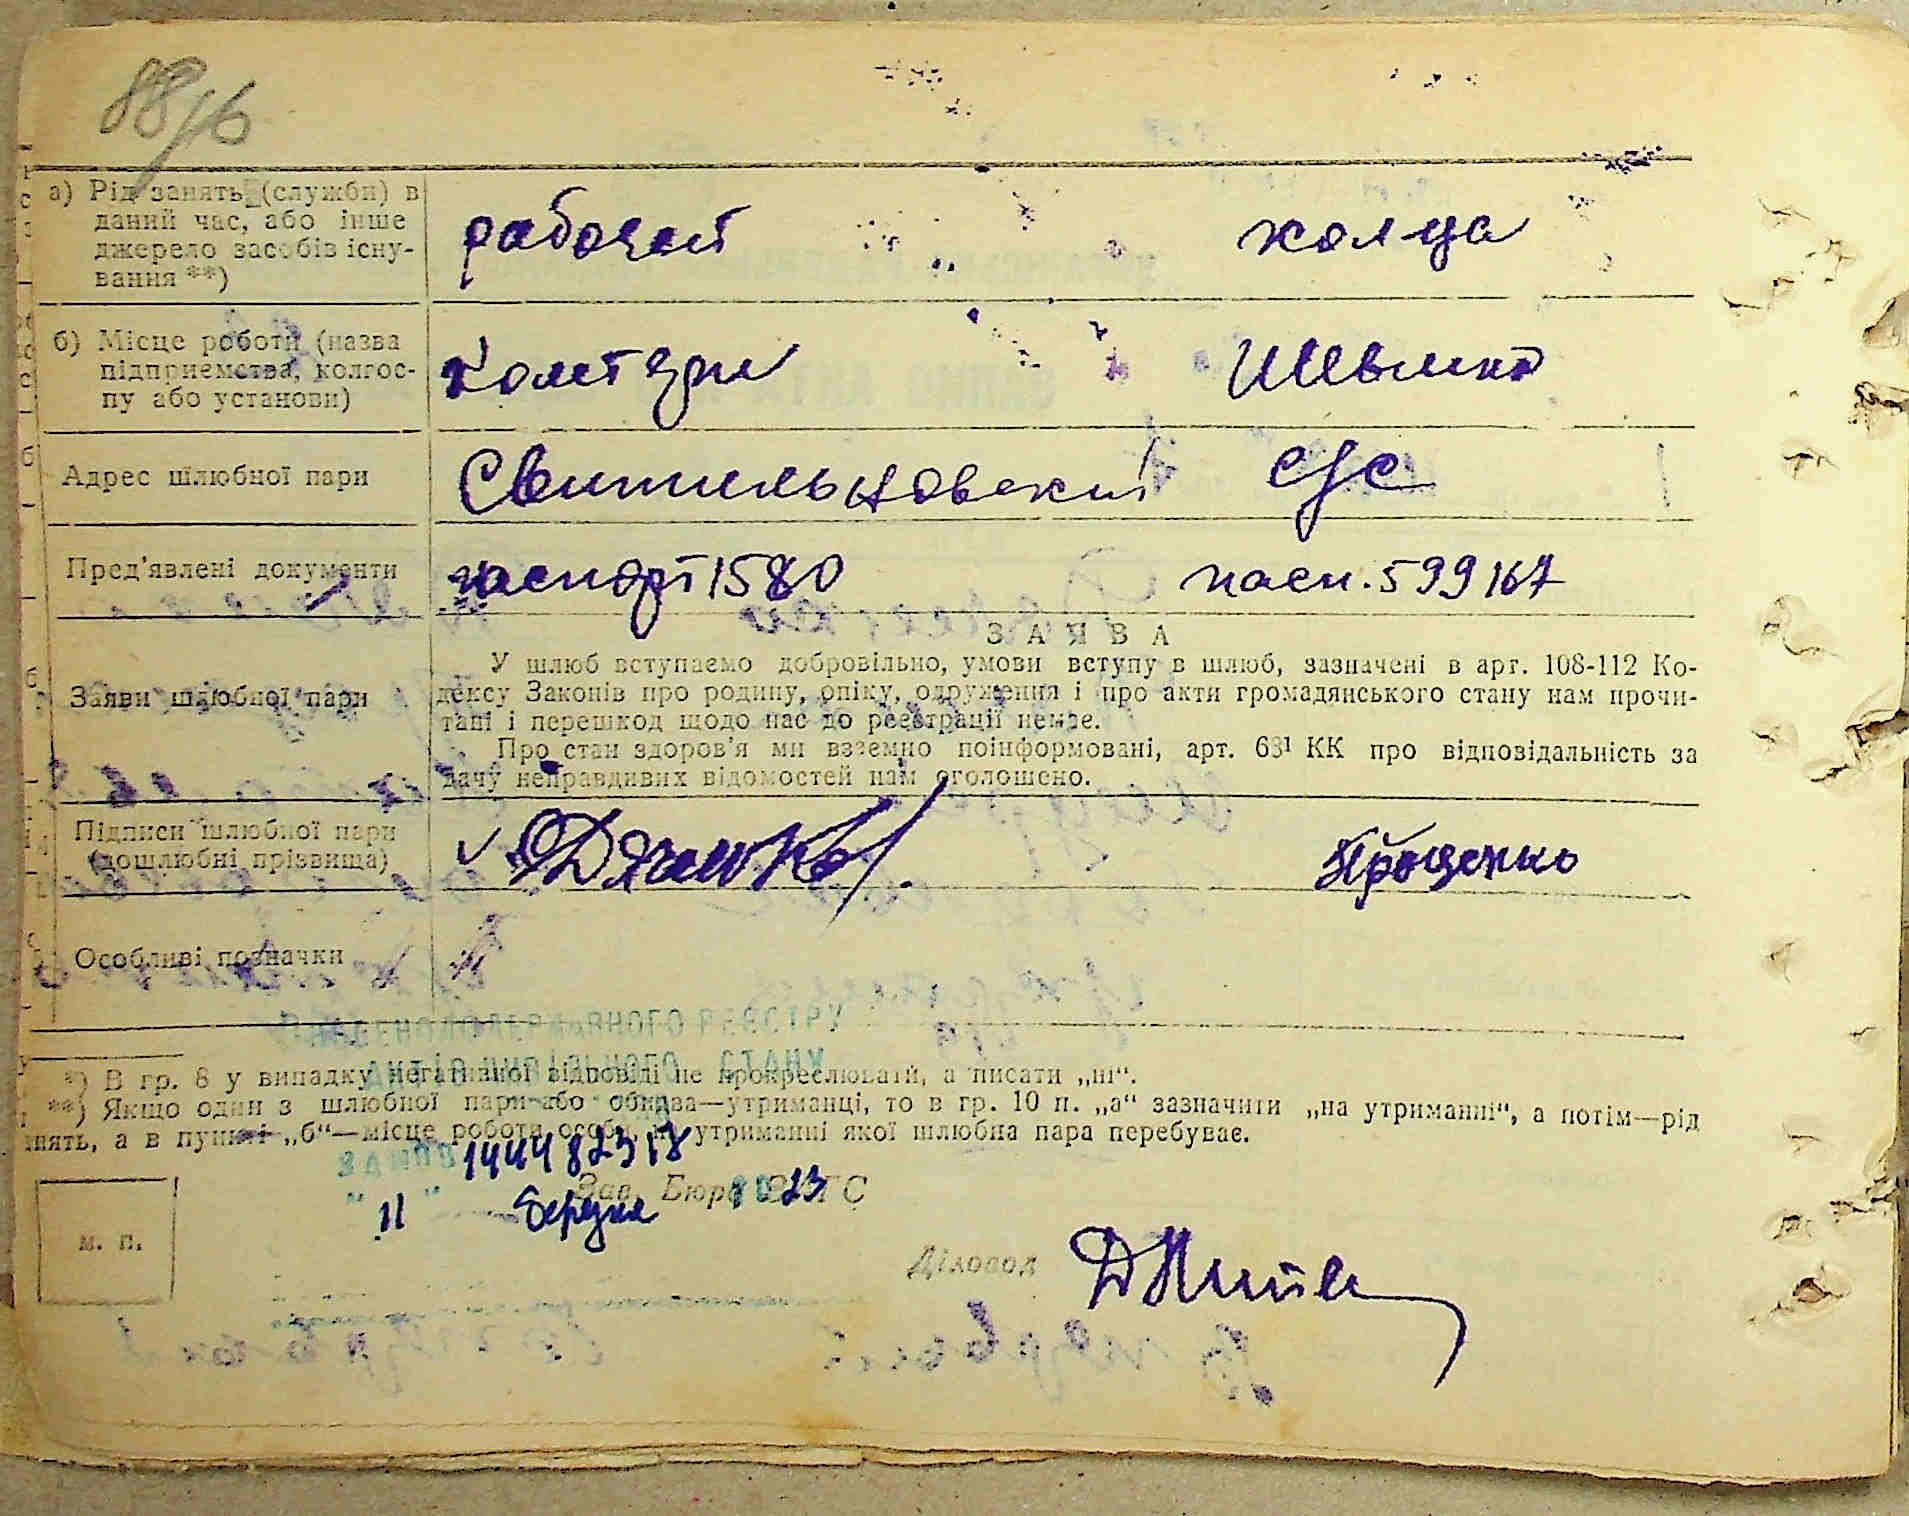 88
а) Рід занять (служби) в
даний час, або інше
джерело засобів існу-
вання **)
рабочей
б) Місце роботи (назва
підприємства, колгос-
пу або установи)
Адрес шлюбної пари
Свитильновский с/с
Пред'явлені документи
паспорт 1580 пасп. 599167
ЗАЯВА
Заяви шлюбної пари
У шлюб вступаємо добровільно, умови вступу в шлюб, зазначені в арт. 108-112 Ко-
дексу Законів про родину, опіку, одруження і про акти громадянського стану нам прочи-
тані і перешкод щодо нас до реєстрації немає.
Про стан здоров'я ми взаємно поінформовані, арт. 68¹ КК про відповідальність за
дачу неправдивих відомостей нам оголошено.
Підписи шлюбної пари
(дошлюбні прізвища)
Дяченко Проценко
Особливі позначки
ДЕРЖАВНОГО РЕЄСТРУ
СТАНУ
*) В гр. 8 у випадку негативної відповіді не прокреслювати, а писати „ні“.
**) Якщо один з шлюбної пари або обидва—утриманці, то в гр. 10 п. „а“ зазначити „на утриманні“, а потім—рід
нять, а в пункті „б“—місце роботи особи, на утриманні якої шлюбна пара перебуває.
Зав. Бюро ЗАГС
"11" березня 23
м. п.
Діловод